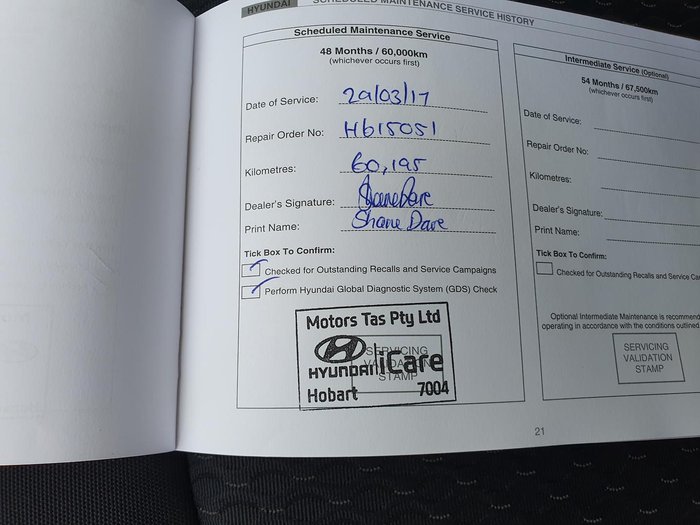 HYUNDAI SCHEDULED MAINTENANCE SERVICE HISTORY
Scheduled Maintenance Service
48 Months / 60,000km
(whichever occurs first)
Date of Service: 29/03/17
Repair Order No: H615051
Kilometres: 60,195
Dealer's Signature: Shane Dare
Print Name: Shane Dare
Tick Box To Confirm:
Checked for Outstanding Recalls and Service Campaigns
Perform Hyundai Global Diagnostic System (GDS) Check
Motors Tas Pty Ltd
SERVICING
VALIDATION
STAMP
HYUNDAI iCare
Hobart 7004
Intermediate Service (Optional)
54 Months / 67,500km
(whichever occurs first)
Date of Service:
Repair Order No:
Kilometres:
Dealer's Signature:
Print Name:
Tick Box To Confirm:
Checked for Outstanding Recalls and Service Cam
Optional Intermediate Maintenance is recommen
operating in accordance with the conditions outlined
SERVICING
VALIDATION
STAMP
21